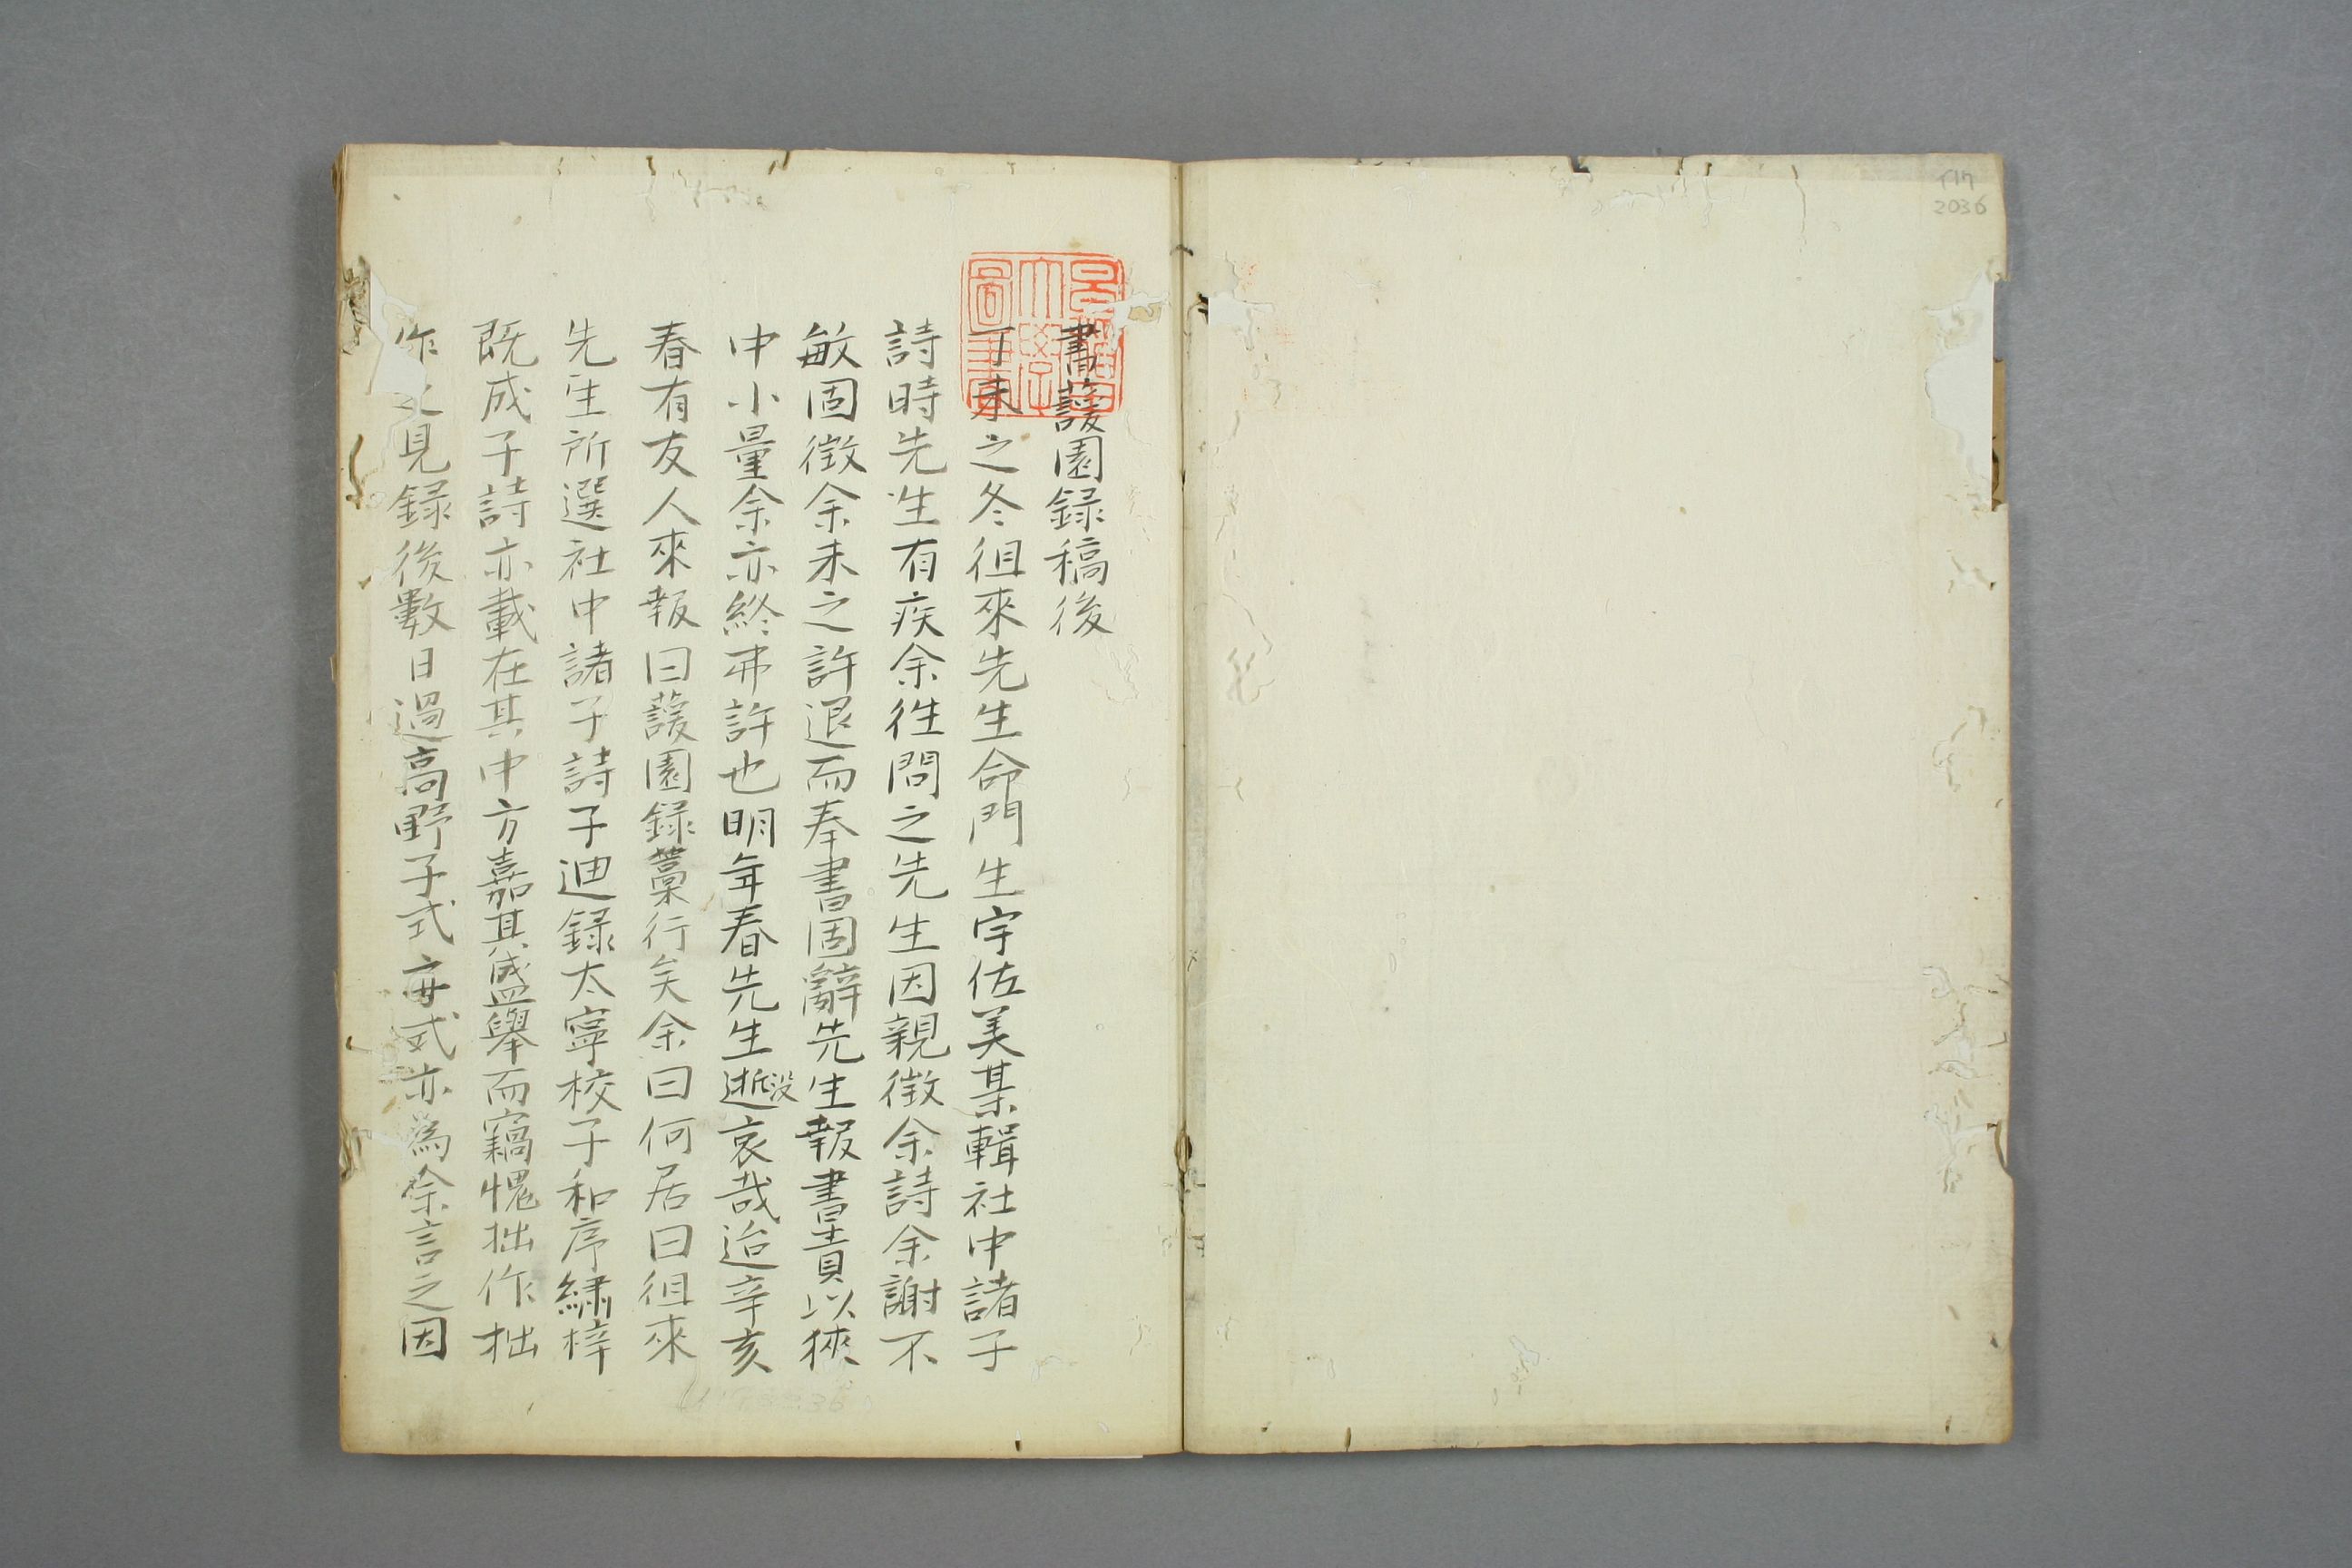 書蘐園録稿後
丁未之冬徂來先生命門生宇佐美某輯社中諸子
詩時先生有疾余徃問之先生因親徴余詩余謝不
敏固徴余未之許退而奉書固辭先生報書責以狹
中小量余亦終弗許也明年春先生逝没哀哉迨辛亥
春有友人來報曰蘐園録藁行矣余曰何居曰徂來
先生所選社中諸子詩子迪録太寧校子和序繡梓
既成子詩亦載在其中方嘉其盛舉而竊愧拙作拙
作之見録後數日過高野子式子式亦為余言之因
2036